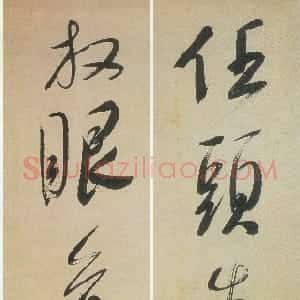 任頭
放眼
Shufaziliao.COM